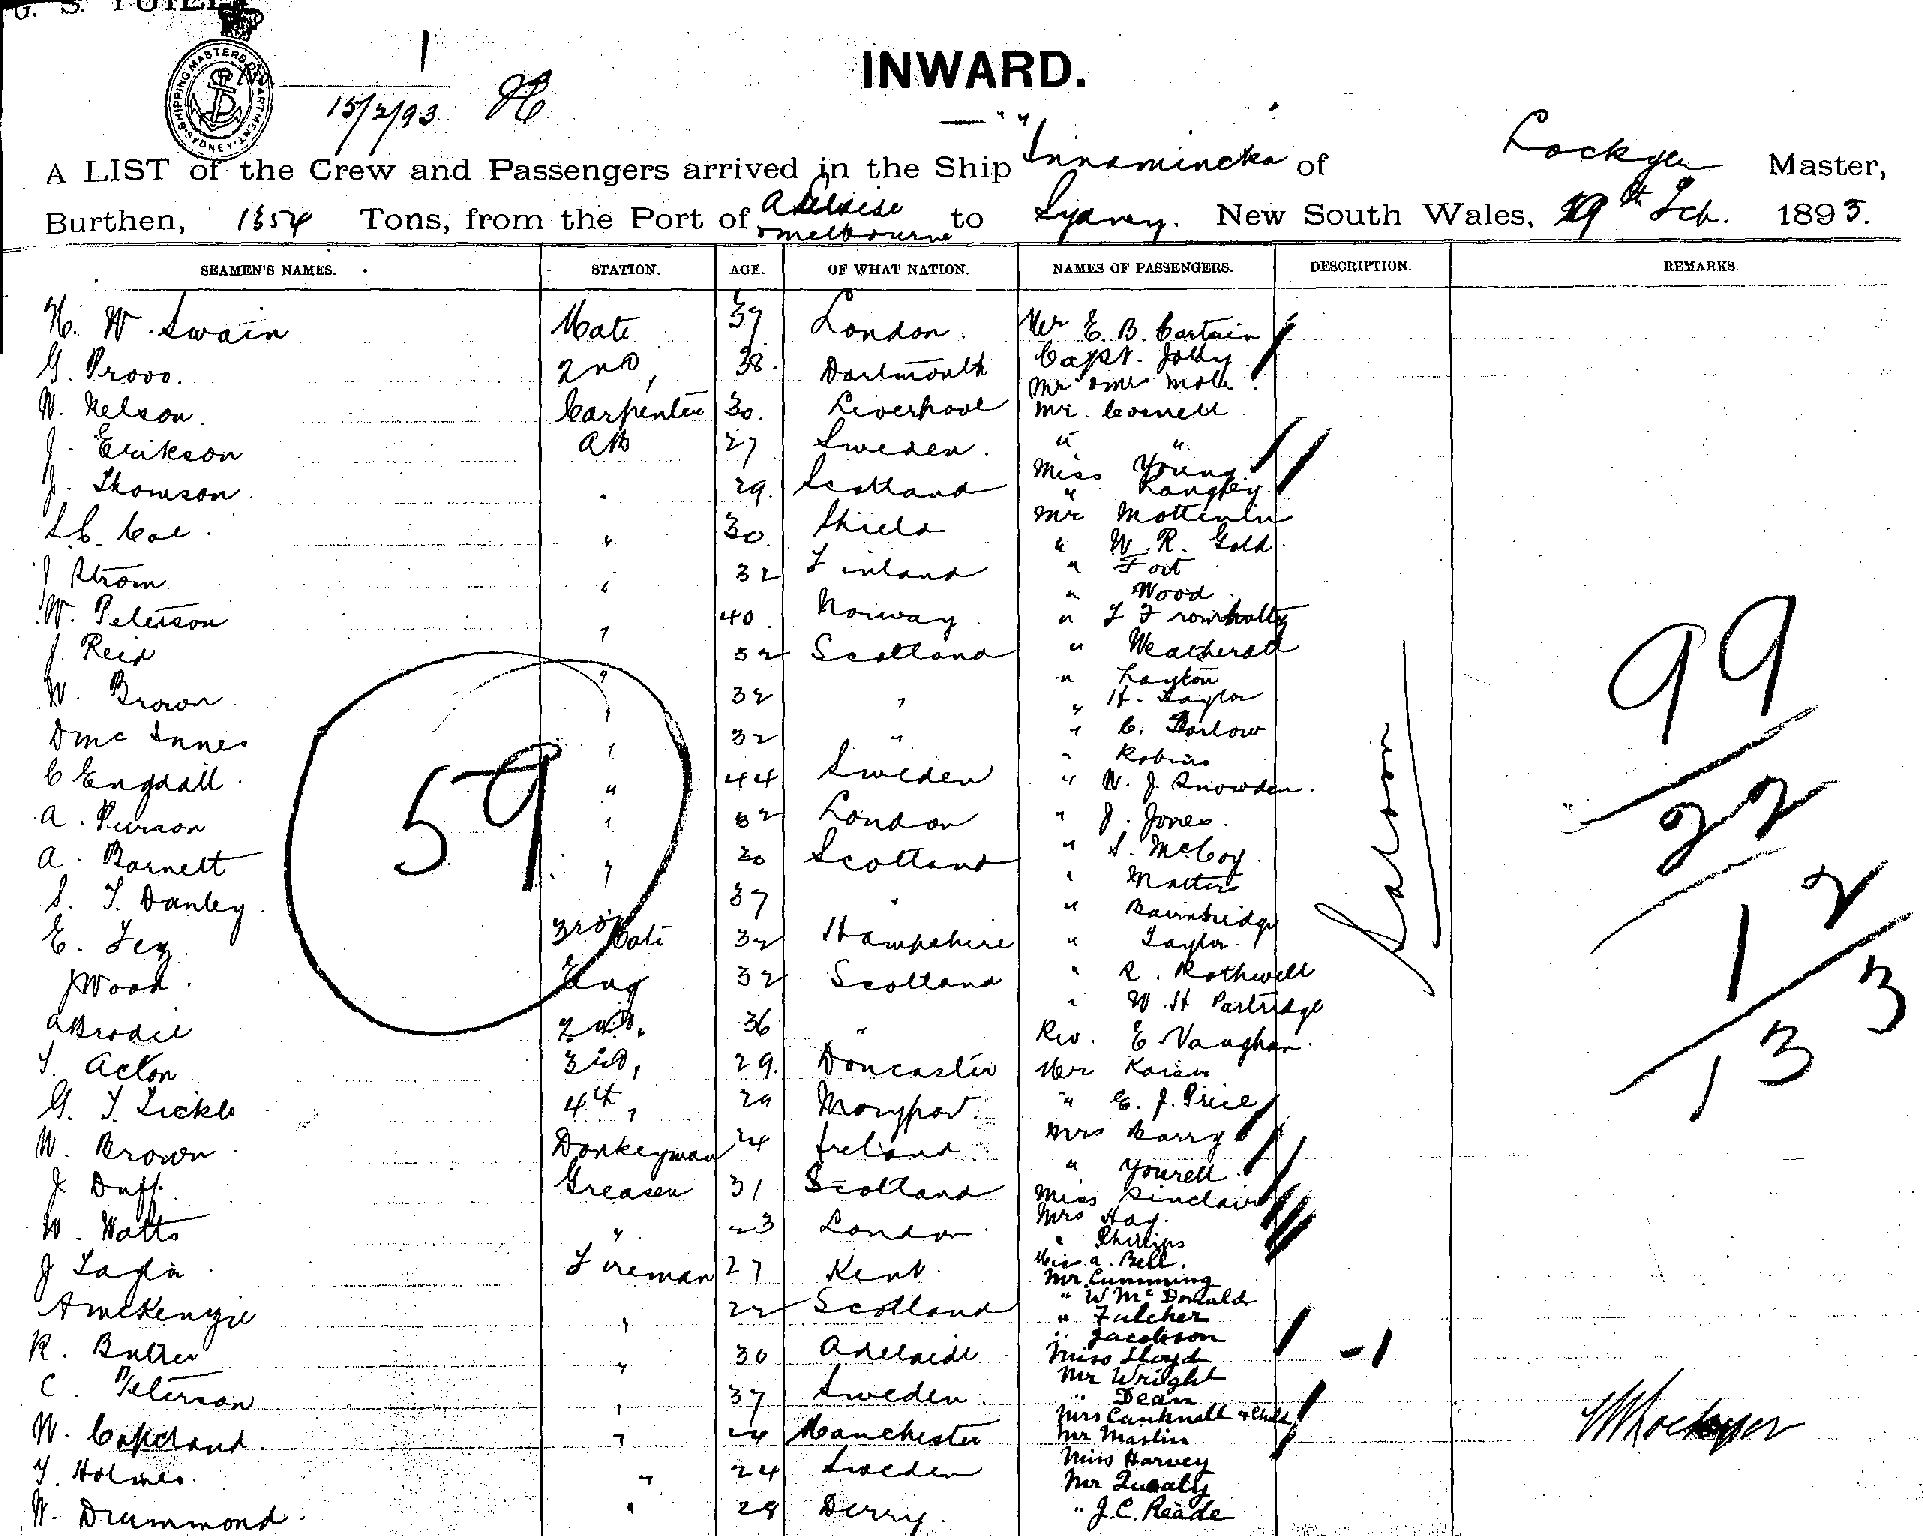 G. S. YUILL
SHIPPING MASTERS DEPARTMENT SYDNEY
1
15/2/93
INWARD.
A LIST of the Crew and Passengers arrived in the Ship Innamincka of Lockyer Master,
Burthen, Tons, from the Port of Adelaide Melbourne to Sydney. New South Wales, Feb. 1893.
SEAMEN'S NAMES. STATION. AGE. OF WHAT NATION. NAMES OF PASSENGERS. DESCRIPTION. REMARKS.
H. W. Swain Mate 37 London. Mr E. B. Curtain
G. Provo. 2nd, 38. Dartmouth Capt. Jolly
Mr Mrs Mole.
W. Nelson. Carpenter 30. Liverpool Mr. Cornell
J. Erikson AB 27 Sweden. " "
Miss Young
J. Thomson. 29. Scotland " Langley
Mr
S. C. Coe. " 30 Shield " W. R. Gold
J Strom " 32 Finland " Fort
" Wood
W. Peterson " 40 Norway "
J. Reid 52 Scotland " Weatherall
" Layton
W. Brown " 32 " " H. Taylor
D Mc Innes " 32 " " C. Barlow
" Robins
C Engdall. " 44 Sweden " W. J. Snowden.
A. Peirson " London " J. Jones.
A. Barnett " 30 Scotland " S. McCoy.
" Matters
S. T. Danley. 37 " " Bainbridge
E. Ley 3rd Mate 32 Hampshire " Taylor.
J Wood. Eng 32 Scotland " R. Rothwell
" W. H Partridge
A Brodie 2nd, 36 " Rev. E Vaughan.
T Acton 3rd, 29. Doncaster Mr Kaiser
G. T. Tickle 4th, 29 Maryport. " E. J. Price
W. Brown Donkeyman 24 Ireland Mrs Barry
" Yourell
J. Duff. Greaser 31 Scotland Miss Sinclair
Mrs Hay.
W. Watts " 23 London " Phillips
Miss A. Bell.
J Taylor Fireman 27 Kent Mr Cumming
" W McDonald
A McKenzie " 22 Scotland " Fulcher
" Jacobson
R. Butler " 30 Adelaide Miss Lloyd
Mr Wright
C. Peterson " 37 Sweden " Dean
Mrs Canknall & Child
W. Copeland. " 24 Manchester Mr Martin
Miss Harvey
T. Holmes. " 24 Sweden Mr
W. Drummond. " 28 Derry. " J. C. Reade
59
Saloon
99
22
12
133
-1
W Lockyer